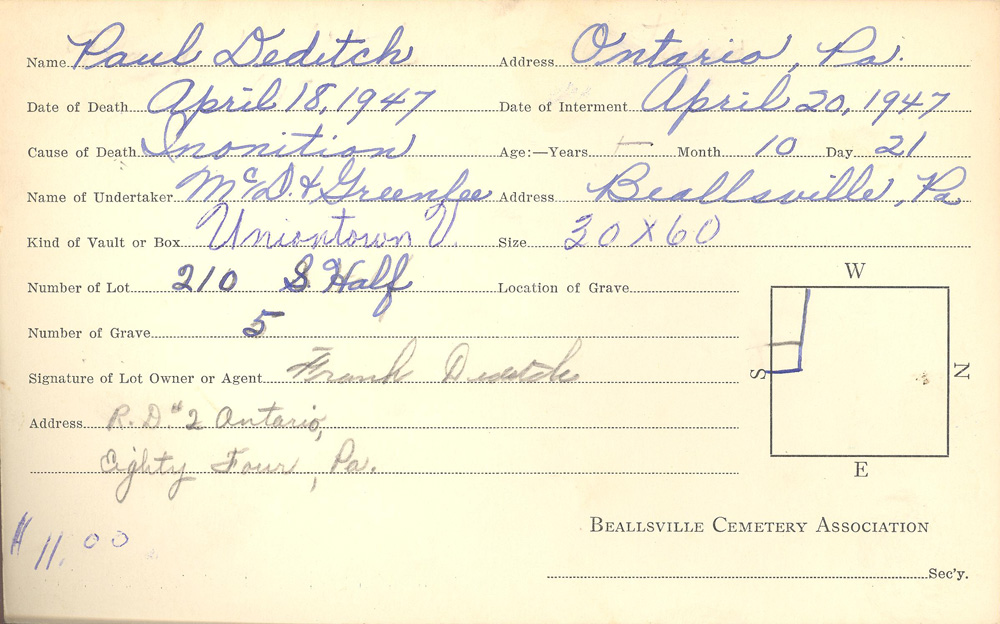 Name Paul Deditch Address Ontario, Pa.
Date of Death April 18, 1947 Date of Interment April 20, 1947
Cause of Death Inonition Age:—Years — Month 10 Day 21
Name of Undertaker McD. & Greenlee Address Beallsville, Pa
Kind of Vault or Box Uniontown V. Size 30 X 60
Number of Lot 210 S. Half Location of Grave
W
Number of Grave 5
Signature of Lot Owner or Agent Frank Deditch
S N
Address R.D. #2 Ontario,
Eighty Four, Pa.
E
$11.00
Beallsville Cemetery Association
Sec'y.